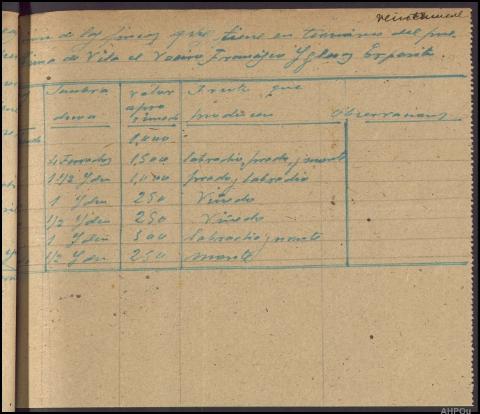 veintinueve
de las fincas que tiene en término del pue
de Vila el Vecino Francisco Yglesias Expósito
Sembra
dura
valor
apro
ximado
Fruto que
producen
Observaciones
1,000
4 Ferrados 1,500 labradio, prado, y monte
1 1/2 Yden 1,000 prado y labradio
1 Yden 250 Viñedo
1/2 Yden 250 Viñedo
1 Yden 500 labradio y monte
1/2 Yden 250 monte
AHPOu